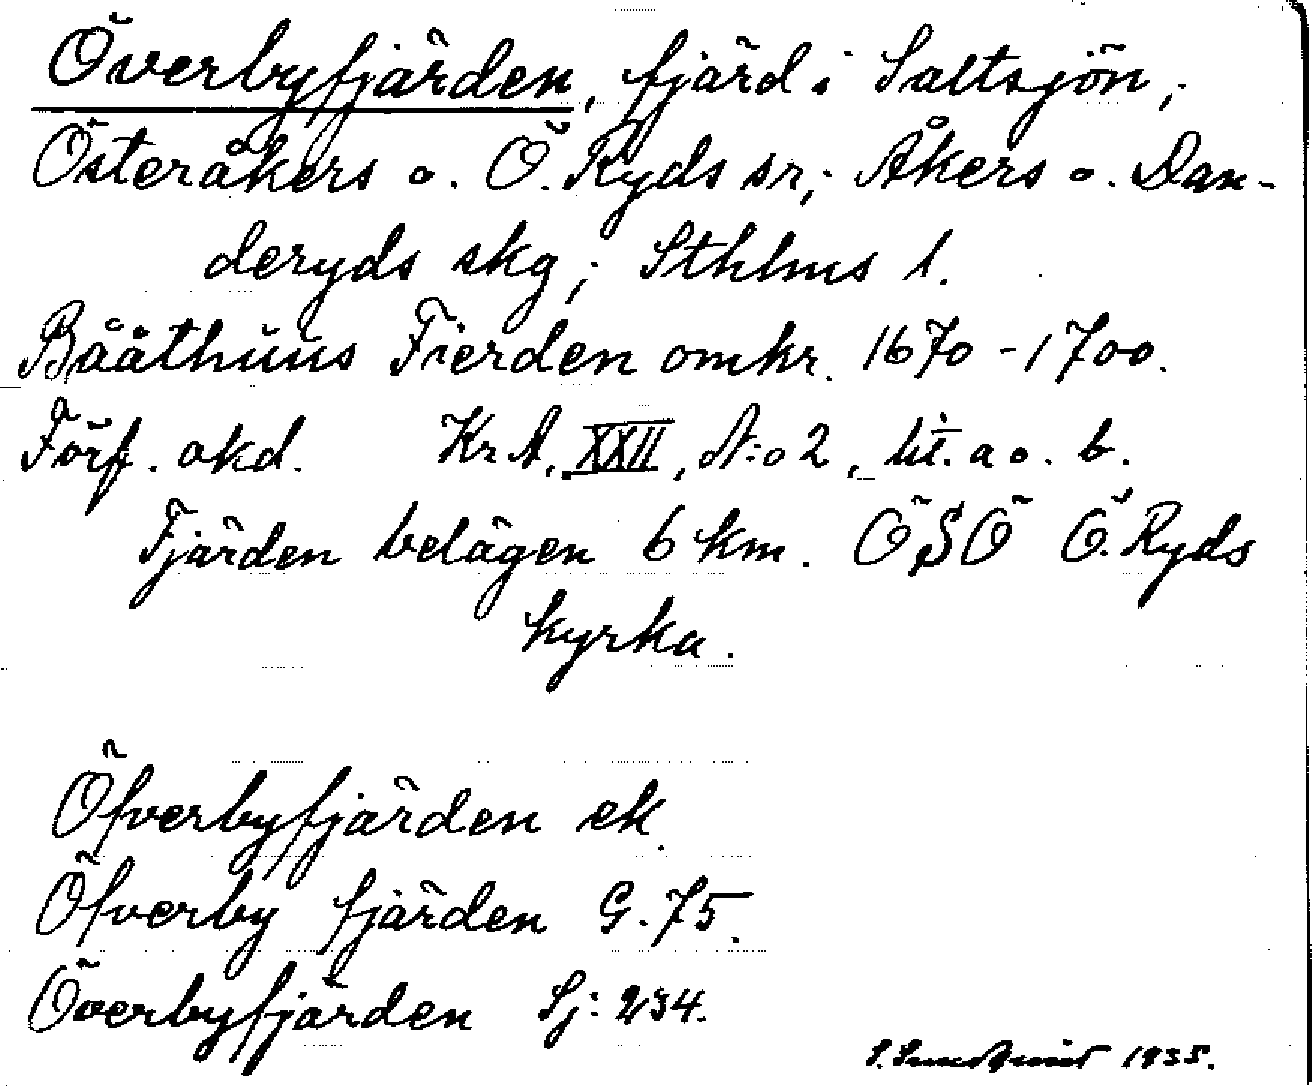 Överbyfjärden, fjärd i Saltsjön,
Österåkers o. Ö. Ryds sr; Åkers o. Dan-
deryds skg; Sthlms l.
Bååthuus Fierden omkr. 1670-1700.
Förf. okd. Kr A, XXII, N:o 2, lit. a o. b.
Fjärden belägen 6 km. ÖSÖ Ö. Ryds
kyrka.
Öfverbyfjärden ek.
Öfverby fjärden G. 75.
Överbyfjärden Sj: 234.
1935.